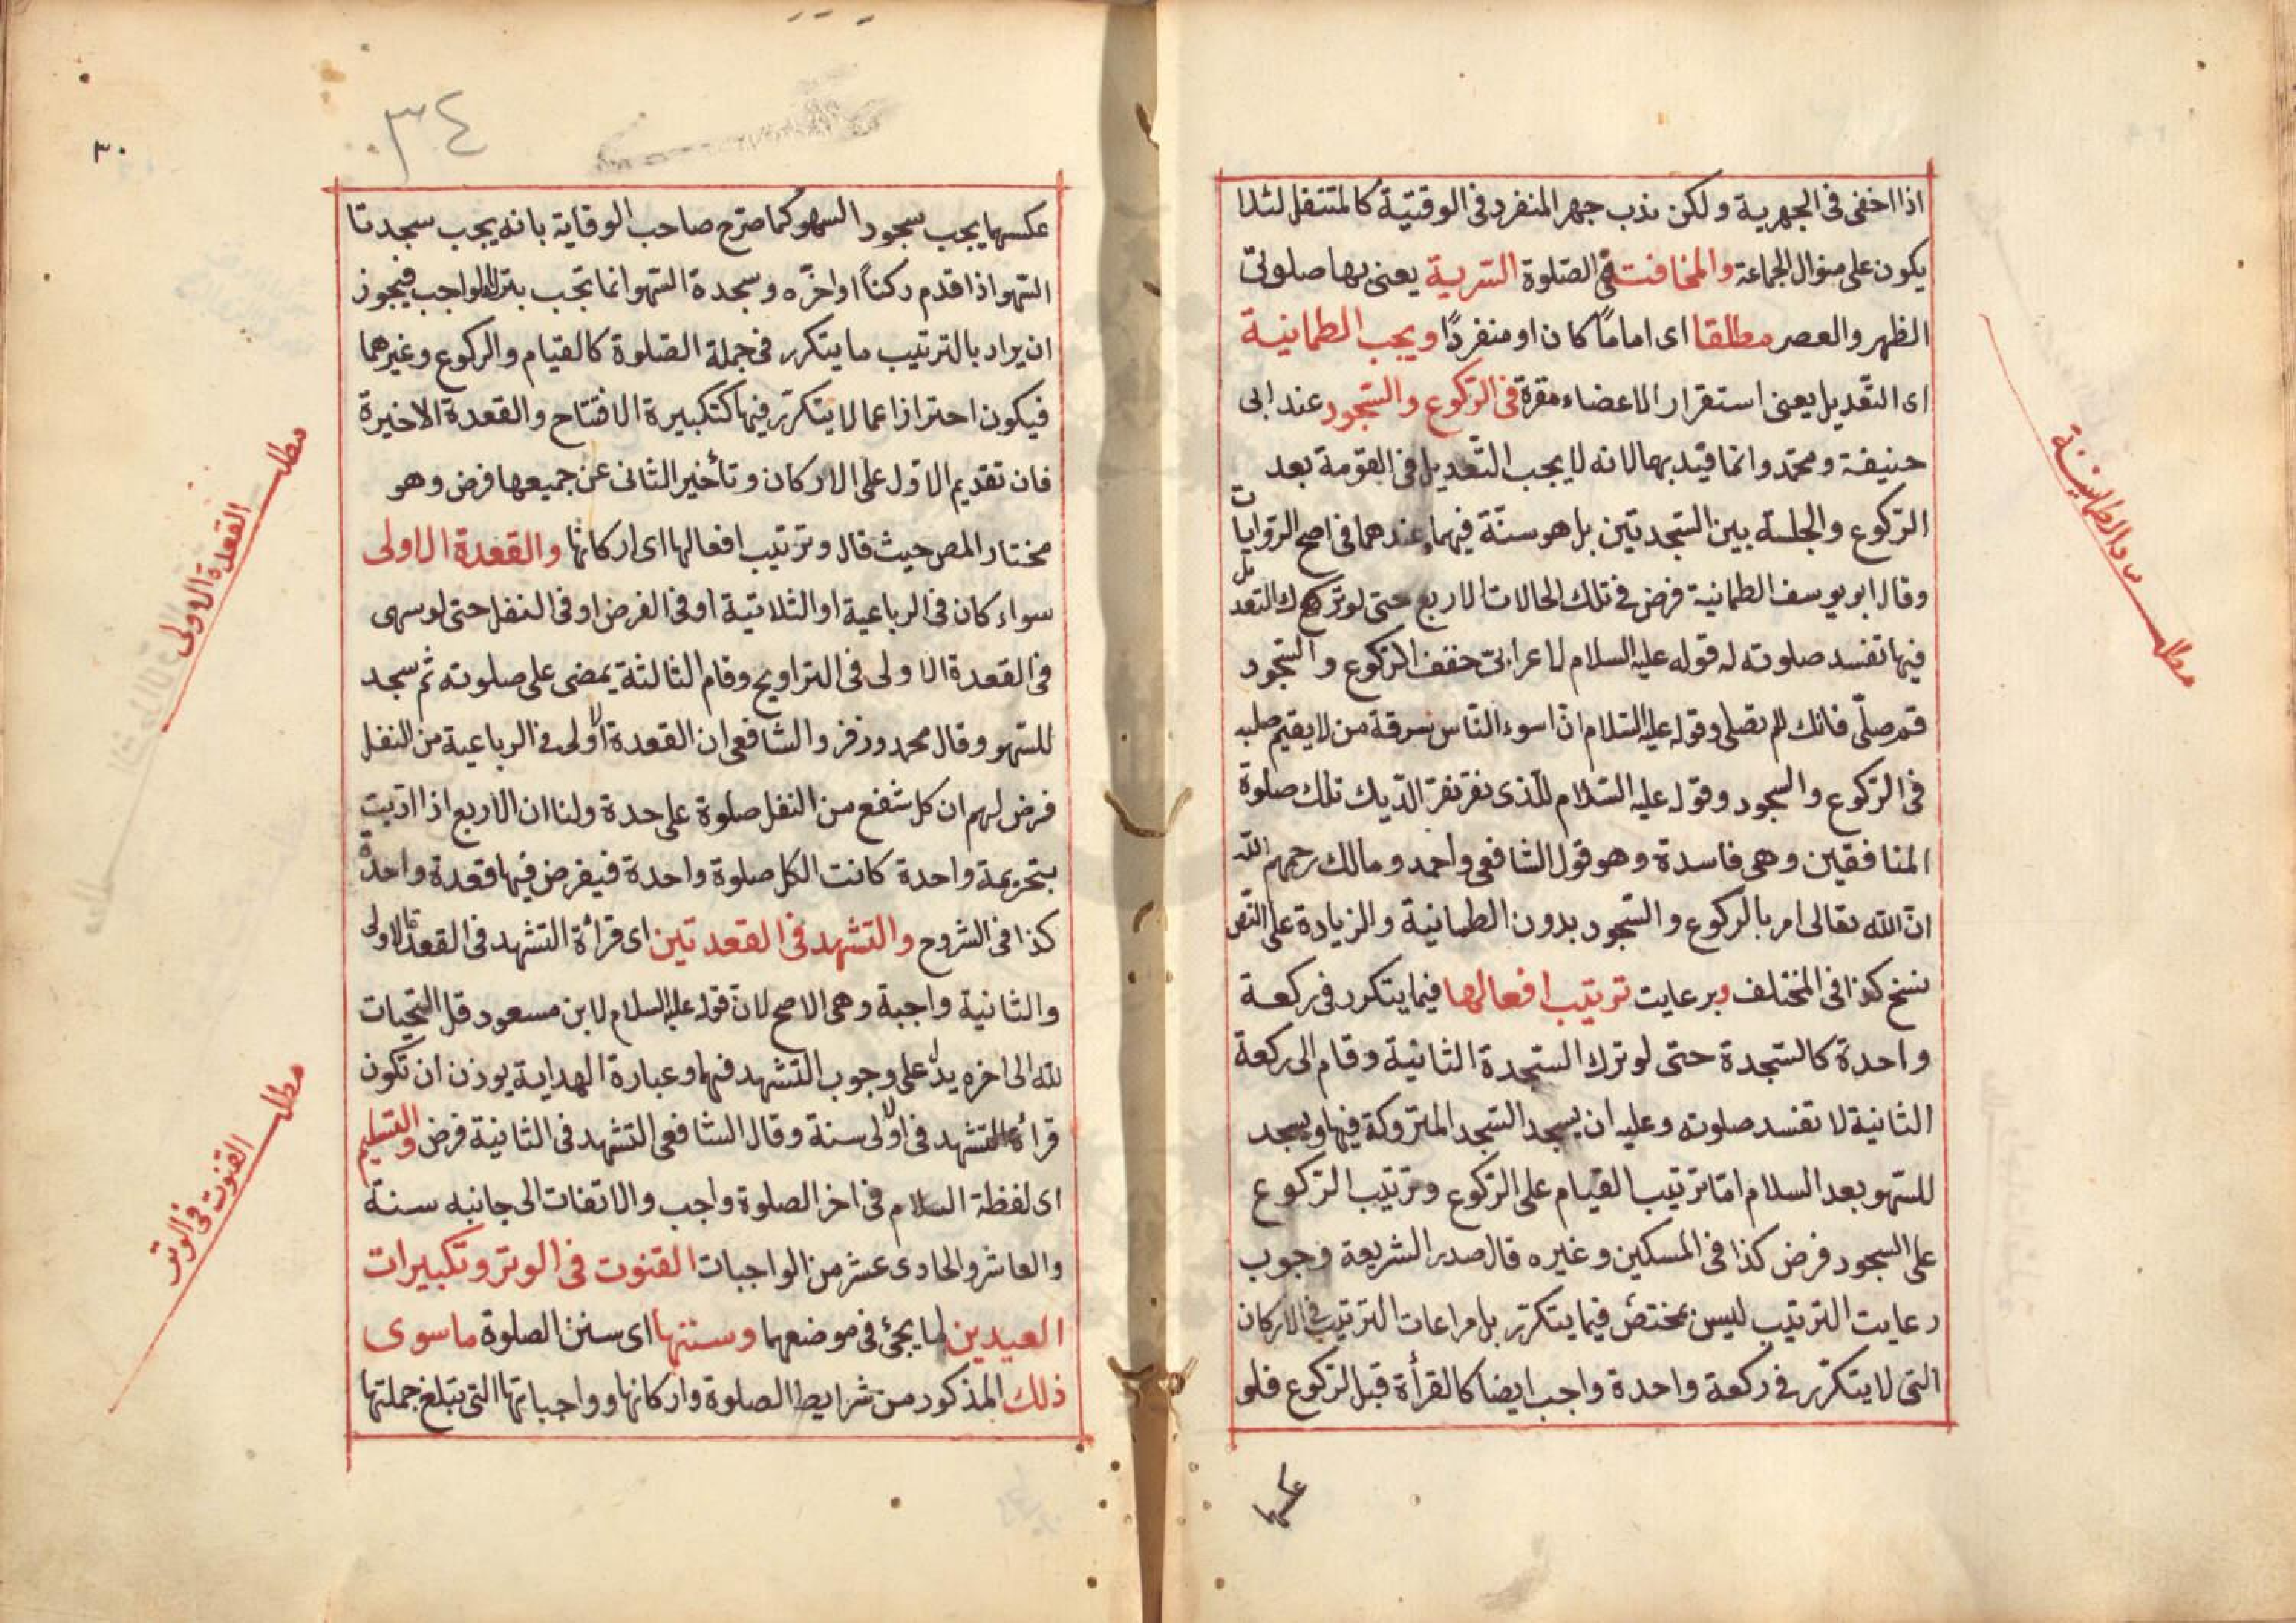 اذا اخفى فى الجهرية ولكن ندب جهر المنفرد فى الوقتيّة كالمتنفل لئلا
يكون على منوال الجماعة والمخافتة فى الصّلوة السّرية يعنى بها صلوتى
الظهر والعصر مطلقا اى اماماً كان او منفردًا ويجب الطمانية
اى التّعديل يعنى استقرار الاعضاء مقرة فى الرّكوع والسّجود عند ابى
حنيفة ومحمّد وانما قيد بهما لانه لا يجب التّعديل فى القومة بعد
الرّكوع والجلسة بين السّجدتين بل هو سنّة فيهما عندهما فى اصح الرّوايات
وقال ابو يوسف الطمانية فرض فى تلك الحالات الاربع حتى لو ترك التعديل
فيها تفسد صلوته له قوله عليه السلام لاعرابىّ خفف الرّكوع والسّجود
قم صلّ فانك لم تصلى وقوله عليه السّلام انّ اسوء النّاس سرقة من لا يقيم صلبه
فى الرّكوع والسجود وقوله عليه السّلام للّذى نقر نقر الدّيك تلك صلوة
المنافقين وهى فاسدة وهو قول الشافعى واحمد ومالك رحمهم الله
انّ الله تعالى امر بالركوع والسّجود بدون الطمانية والزيادة على النّص
نسخ كذا فى المختلف وبرعايت ترتيب افعالها فيما يتكرر فى ركعة
واحدة كالسّجدة حتى لو ترك السّجدة الثانية وقام الى ركعة
الثانية لا تفسد صلوته وعليه ان يسجد السّجد المتروكة فيها ويسجد
للسّهو بعد السلام امّا ترتيب القيام على الرّكوع وترتيب الرّكوع
على السجود فرض كذا فى المسكين وغيره قال صدر الشريعة وجوب
رعايت الترتيب ليس بمختصّ فيما يتكرّر بل مراعات الترتيب فى الاركان
التى لا يتكرّر فى ركعة واحدة واجب ايضا كالقرأة قبل الرّكوع فلو
عكسها
مطلب
الطمانينة
٣٤
٣٠
عكسها يجب سجود السهو كما صرّح صاحب الوقاية بانه يجب سجدتا
السّهو اذا قدم ركناً او اخّره وسجدة السّهو انما تجب بترك الواجب فيجوز
ان يراد بالترتيب ما يتكرر فى جملة الصّلوة كالقيام والركوع وغيرهما
فيكون احترازا عما لا يتكرّر فيها كتكبيرة الافتتاح والقعدة الاخيرة
فان تقديم الاوّل على الاركان وتأخير الثانى عن جميعها فرض وهو
مختار المص حيث قال وترتيب افعالها اى اركانها والقعدة الاولى
سواء كان فى الرباعية او الثلاثية او فى الفرض او فى النفل حتى لو سهى
فى القعدة الاولى فى التراويح وقام الثالثة يمضى على صلوته ثم سجد
للسّهو وقال محمد وزفر والشافعى ان القعدة الاولى فى الرباعية من النفل
فرض لهم ان كل شفع من النفل صلوة على حدة ولنا ان الاربع اذا ادّيت
بتحريمة واحدة كانت الكل صلوة واحدة فيفرض فيها قعدة واحدة
كذا فى الشروح والتشهد فى القعدتين اى قرأة التشهد فى القعدة الاولى
والثانية واجبة وهى الاصح لانّ قوله عليه السلام لابن مسعود قل التّحيات
لله الى اخره يدلّ على وجوب التشهد فيهما وعبارة الهداية يوذن ان تكون
قرأة التشهد فى الاولى سنة وقال الشافعى التشهد فى الثانية فرض والتسليم
اى لفظة السلام فى اخر الصلوة واجب والاتفات الى جانبه سنة
والعاشر والحادى عشر من الواجبات القنوت فى الوتر وتكبيرات
العيدين لما يجئ فى موضعهما وسننها اى سنن الصلوة ما سوى
ذلك المذكور من شرايط الصلوة واركانها وواجباتها التى تبلغ جملتها
مطلب
القعدة الاولى
مطلب
القنوت فى الوتر